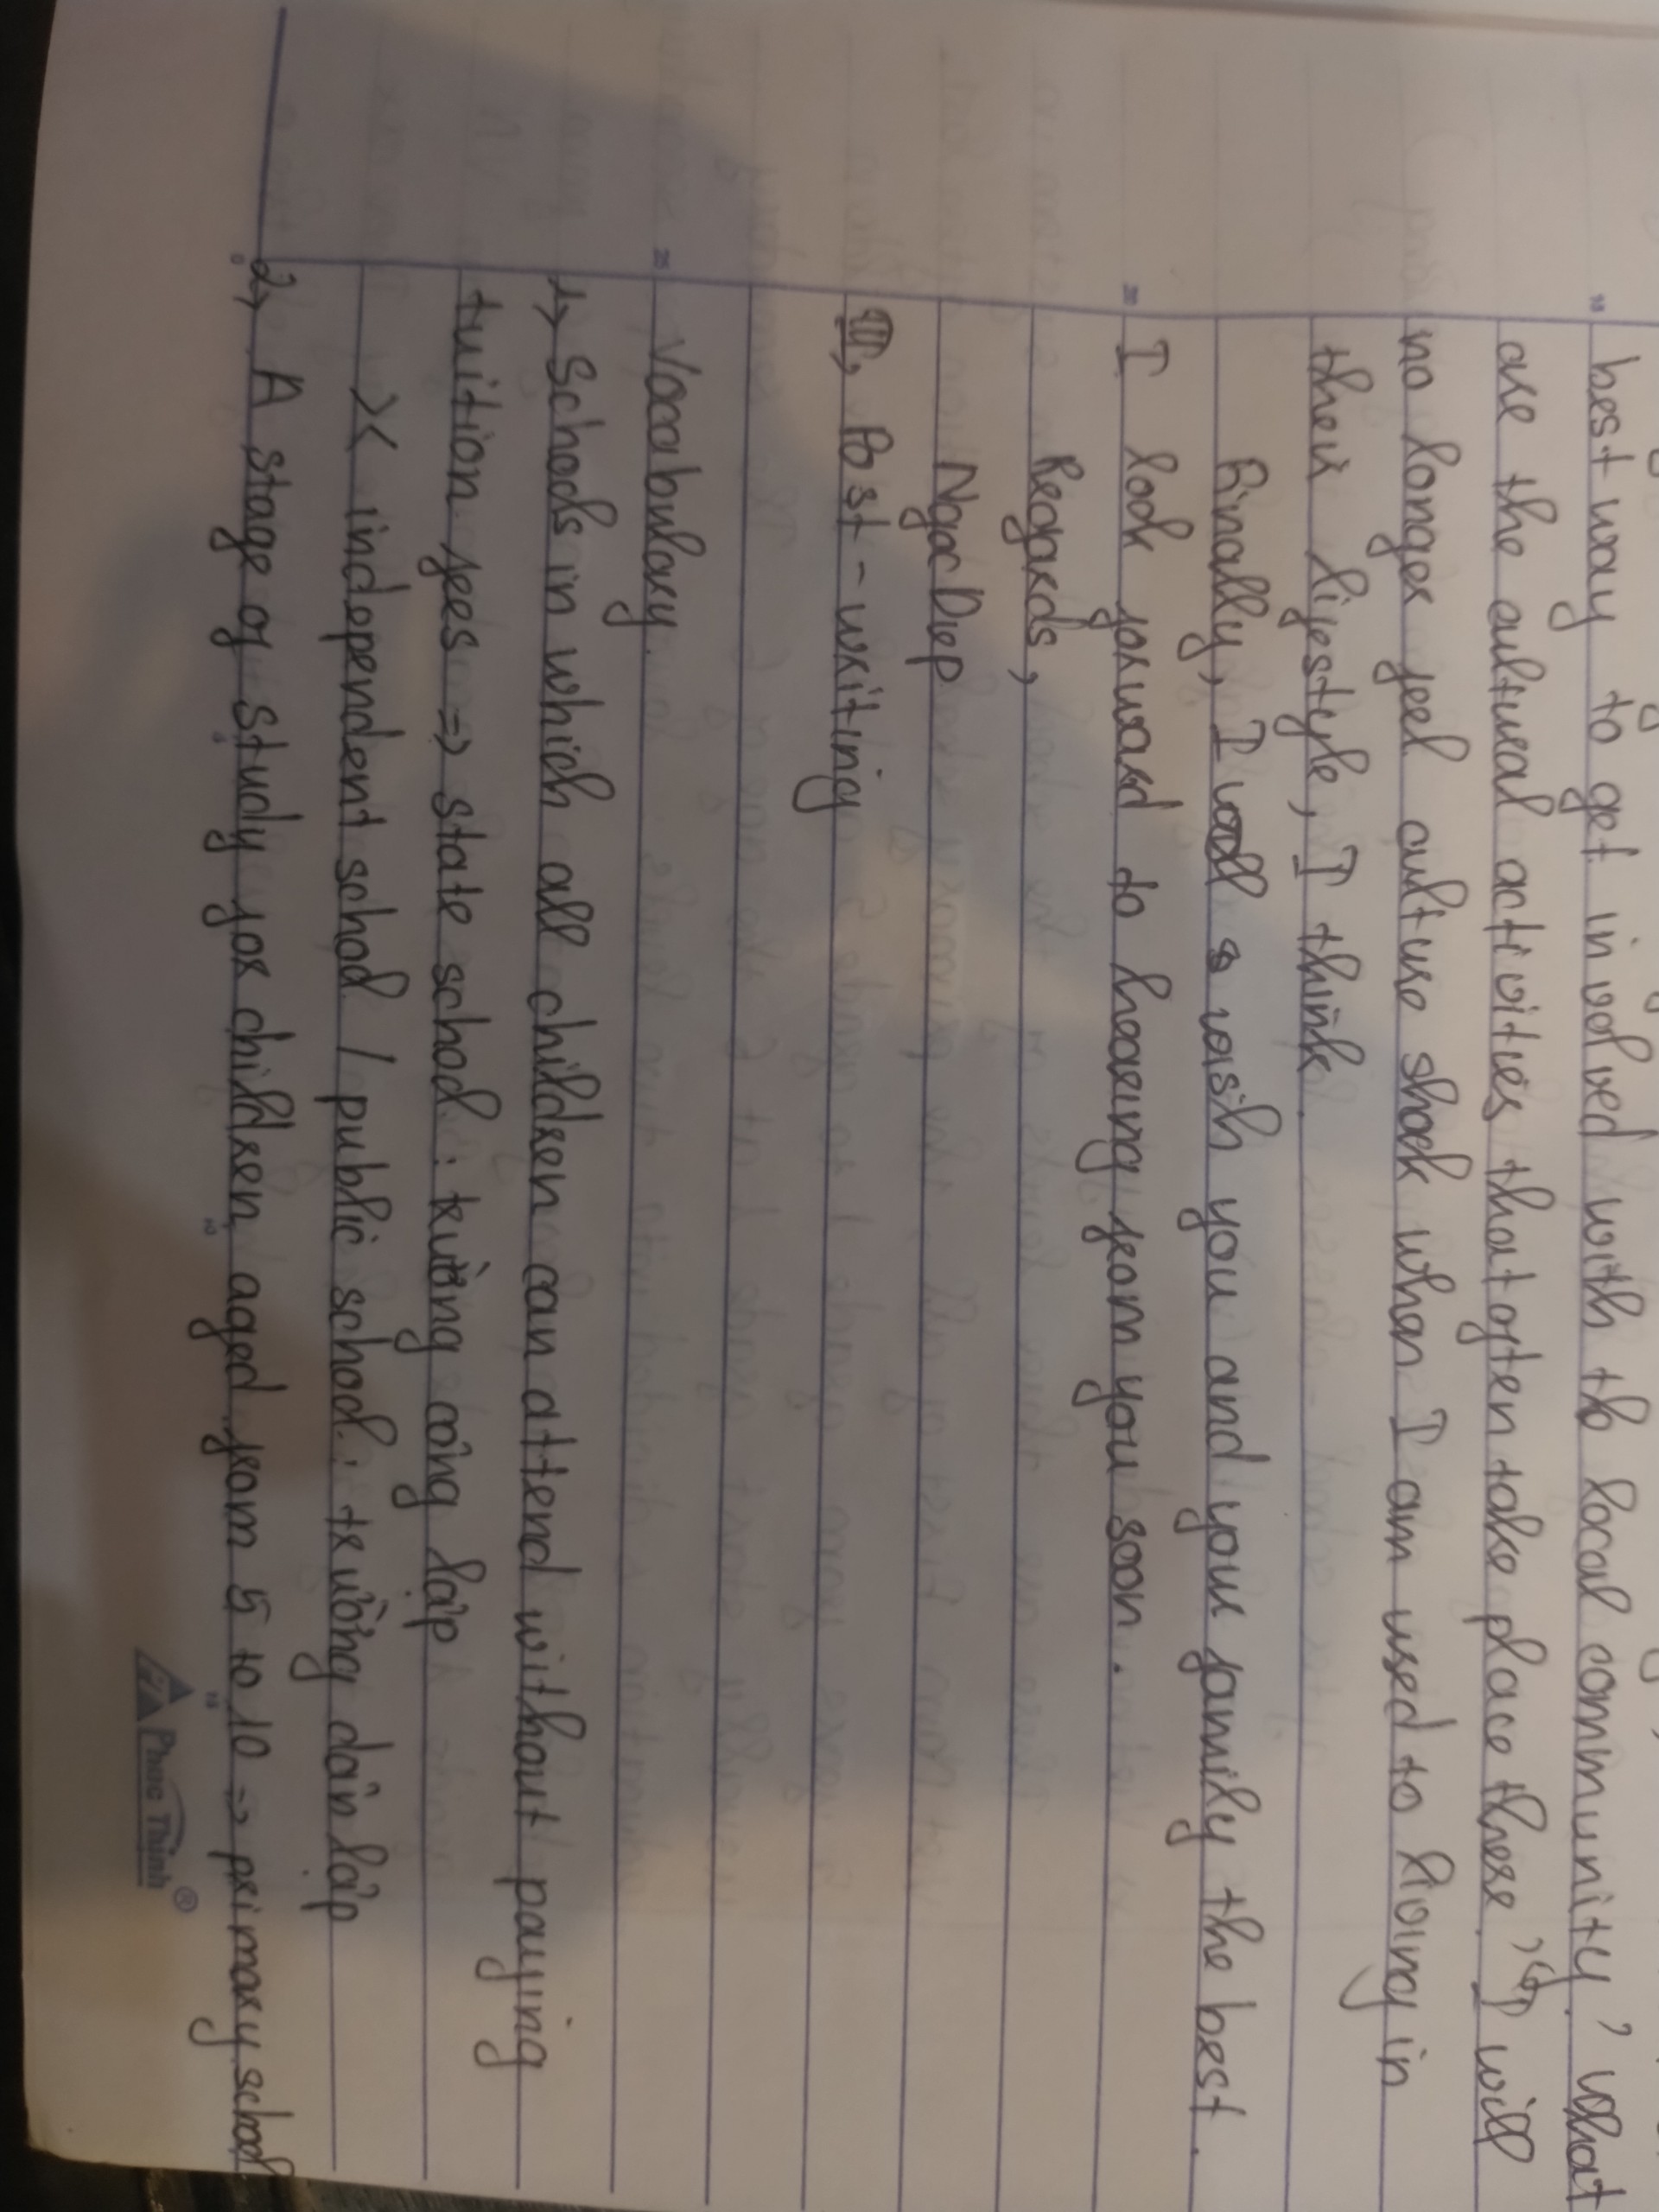 best way to get involved with the local community, what
are the cultural activities that often take place there. I will
no longer feel culture shock when I am used to living in
their lifestyle, I think.
Finally, I wish you and your family the best.
I look forward to hearing from you soon.
Regards,
Ngọc Diep
III, Post-writing
Vocabulary.
1> Schools in which all children can attend without paying
tuition fees => state school : trường công lập
>< independent school / public school : trường dân lập
2> A stage of study for children aged from 5 to 10 => primary school
Phuc Thinh ®
15
20
25
0
5
10
15